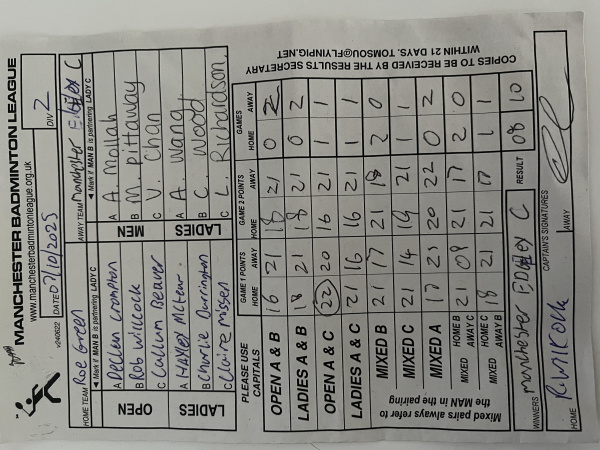 MANCHESTER BADMINTON LEAGUE
www.manchesterbadmintonleague.org.uk
v240622 DATED 7/10/2025 DIV 2
HOME TEAM Roe Green AWAY TEAM Manchester C
◄ Mark if MAN B is partnering LADY C ◄ Mark if MAN B is partnering LADY C
OPEN A Declan Crompton MEN A A. Mollah
B Rob Wilcock B M. Pittaway
C Callum Beaver C V. Chan
LADIES A HAYLEY McTear. LADIES A A. Wang
B Charlie Durrington B C. Wood
C Claire Missen C L. Richardson
PLEASE USE CAPITALS GAME 1 POINTS GAME 2 POINTS GAMES
HOME AWAY HOME AWAY HOME AWAY
OPEN A & B 16 21 18 21 0 2
LADIES A & B 18 21 18 21 0 2
OPEN A & C 22 20 16 21 1 1
LADIES A & C 21 16 16 21 1 1
Mixed pairs always refer to the MAN in the pairing
MIXED B 21 17 21 18 2 0
MIXED C 21 14 19 21 1 1
MIXED A 17 23 20 22 0 2
MIXED HOME B AWAY C 21 09 21 17 2 0
MIXED HOME C AWAY B 18 21 21 17 1 1
WINNERS Manchester C RESULT 08 10
HOME R WILCOCK CAPTAIN'S SIGNATURES AWAY
COPIES TO BE RECEIVED BY THE RESULTS SECRETARY
WITHIN 21 DAYS. TOMSOU@FLYINPIG.NET